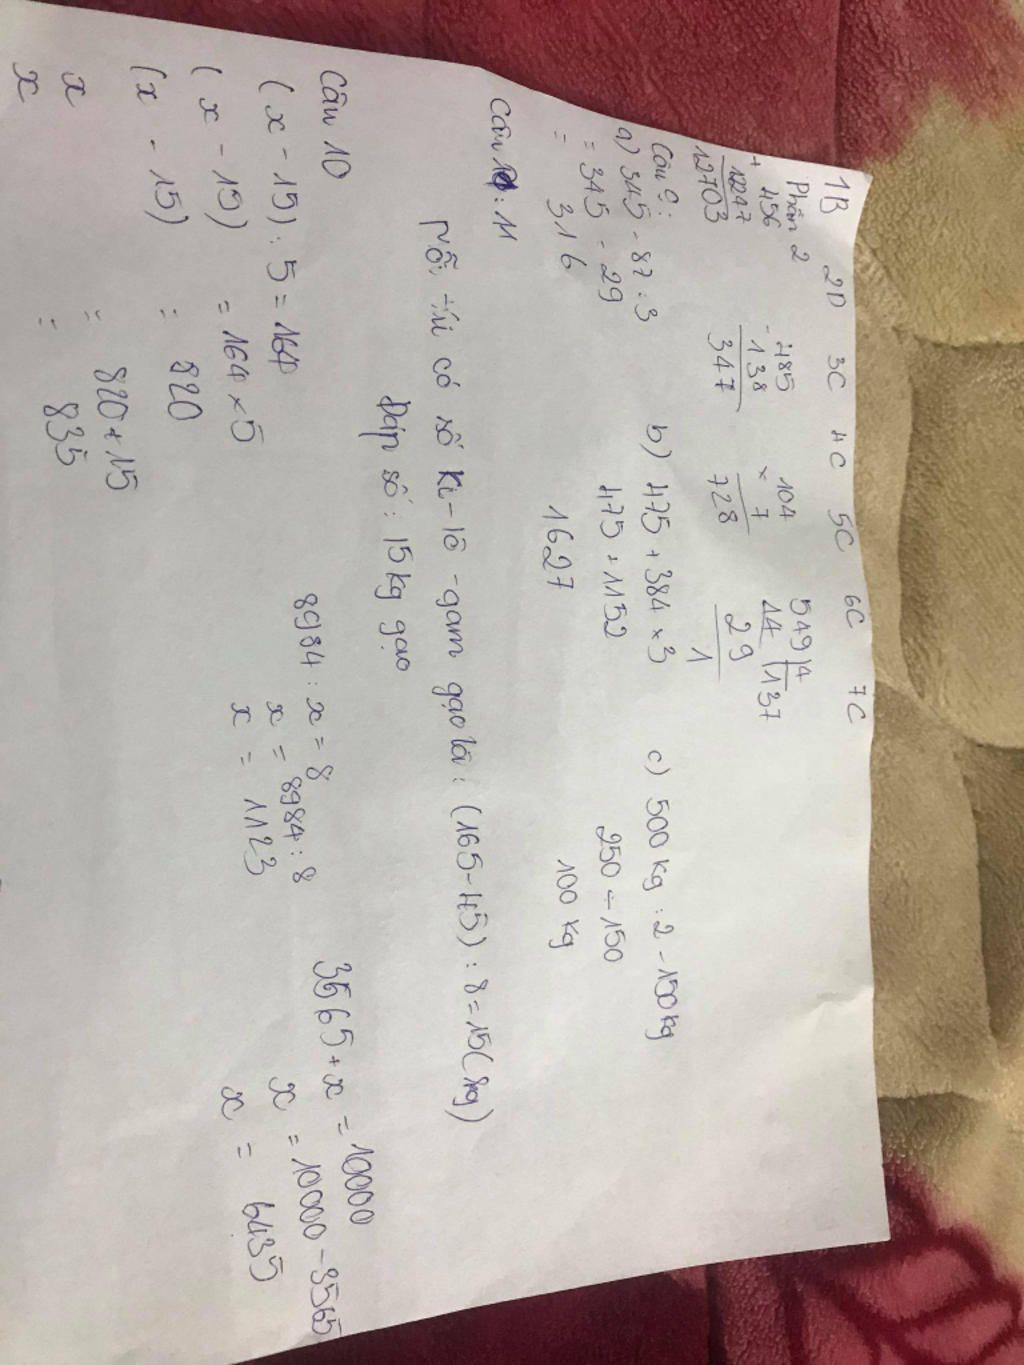 1B 2D 3C 4C 5C 6C 7C
Phần 2
+ 456 485 104 549 4
12247 - 138 × 7 14 137
12703 347 728 29
1
Câu 9:
a) 345 - 87 : 3 b) 475 + 384 × 3 c) 500 kg : 2 - 150 kg
= 345 - 29 475 + 1152 250 - 150
= 316 1627 100 kg
Câu : 11
Mỗi túi có số ki-lô-gam gạo là : (165-45) : 8 = 15 (kg)
Đáp số : 15 kg gạo
Câu 10
(x - 15) : 5 = 164 8984 : x = 8 3565 + x = 10000
(x - 15) = 164 × 5 x = 8984 : 8 x = 10000 - 3565
(x - 15) = 820 x = 1123 x = 6435
x = 820 + 15
x = 835